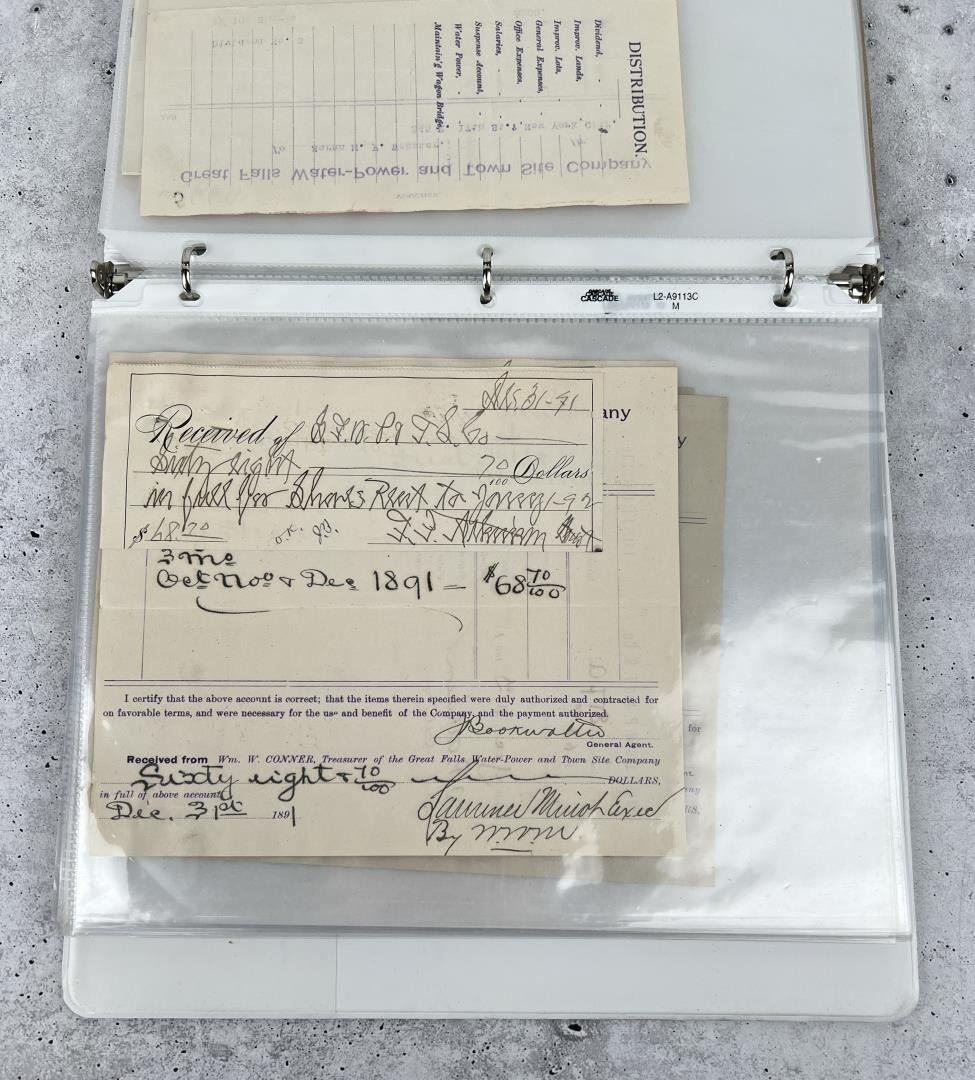 DISTRIBUTION.
Dividend,
Improv. Lands,
Improv. Lots,
General Expenses,
Office Expenses,
Salaries,
Suspense Account,
Water Power,
Maintain'g Wagon Bridge,
Dividend No. 3
17th St., New York, City.
To
Great Falls Water-Power and Town Site Company
CASCADE
L2-A9113C
M
Dec 31-91
Received of G. F. W. P. & T. S. Co
Sixty Eight 70/100 Dollars
in full for Rent to 1-92
$68.70 O.K.
any
y
3 mo
Oct Nov & Dec 1891 — $68 70/100
I certify that the above account is correct; that the items therein specified were duly authorized and contracted for
on favorable terms, and were necessary for the use and benefit of the Company, and the payment authorized.
for
JBookwalter
General Agent.
Received from Wm. W. CONNER, Treasurer of the Great Falls Water-Power and Town Site Company
Sixty eight & 70/100 DOLLARS,
in full of above account
Dec. 31st 1891
By